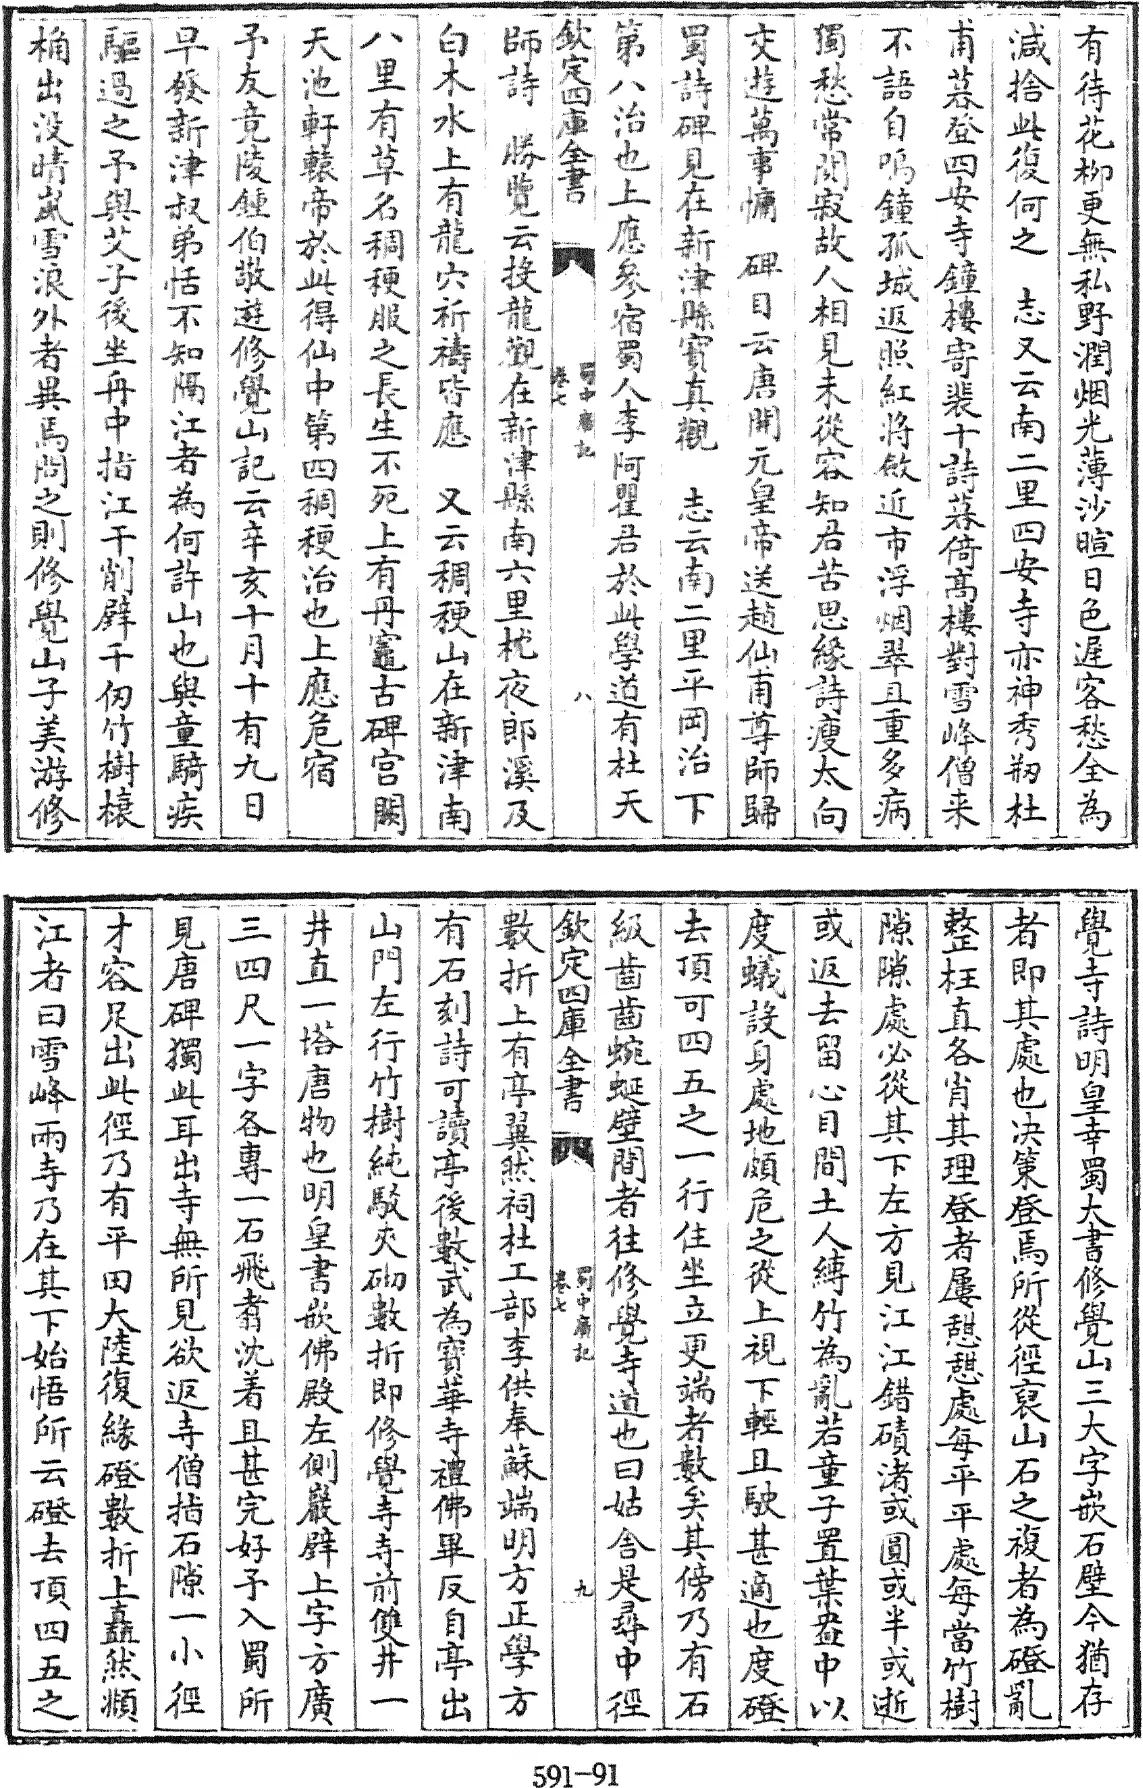 有待花柳更無私野潤烟光薄沙暄日色遲客愁全為
減捨此復何之　志又云南二里四安寺亦神秀剏杜
甫暮登四安寺鐘樓寄裴十詩暮倚高樓對雪峰僧来
不語自鳴鐘孤城返照紅將歛近市浮烟翠且重多病
獨愁常闃寂故人相見未從容知君苦思緣詩瘦太向
交遊萬事慵　碑目云唐開元皇帝送趙仙甫尊師歸
蜀詩碑見在新津縣寳真觀　志云南二里平岡治下
第八治也上應參宿蜀人李阿瞿君於此學道有杜天
欽定四庫全書
蜀中廣記
卷七
八
師詩　勝覽云投龍觀在新津縣南六里枕夜郎溪及
白木水上有龍穴祈禱皆應　又云稠稉山在新津南
八里有草名稠稉服之長生不死上有丹竈古碑宫闕
天池軒轅帝於此得仙中第四稠稉治也上應危宿
予友竟陵鍾伯敬遊修覺山記云辛亥十月十有九日
早發新津叔弟恬不知隔江者為何許山也與童騎疾
驅過之予與艾子後坐舟中指江干削壁千仞竹樹榱
桷出没晴嵐雪浪外者異焉問之則修覺山子美游修
覺寺詩明皇幸蜀大書修覺山三大字嵌石壁今猶存
者即其處也决策登焉所從徑裒山石之複者為磴亂
整枉直各肖其理登者屢憩憩處每平平處每當竹樹
隙隙處必從其下左方見江江錯磧渚或圓或半或逝
或返去留心目間土人縛竹為亂若童子置葉盎中以
度蟻設身處地頗危之從上視下輕且駛甚適也度磴
去頂可四五之一行住坐立更端者數矣其傍乃有石
級齒齒蜿蜒壁間者往修覺寺道也曰姑舍是尋中徑
欽定四庫全書
蜀中廣記
卷七
九
數折上有亭翼然祠杜工部李供奉蘇端明方正學方
有石刻詩可讀亭後數武為寳華寺禮佛畢反自亭出
山門左行竹樹純駁夾砌數折即修覺寺寺前雙井一
井直一塔唐物也明皇書嵌佛殿左側巖壁上字方廣
三四尺一字各專一石飛翥沈着且甚完好予入蜀所
見唐碑獨此耳出寺無所見欲返寺僧指石隙一小徑
才容足出此徑乃有平田大陸復緣磴數折上矗然瀕
江者曰雪峰兩寺乃在其下始悟所云磴去頂四五之
591-91